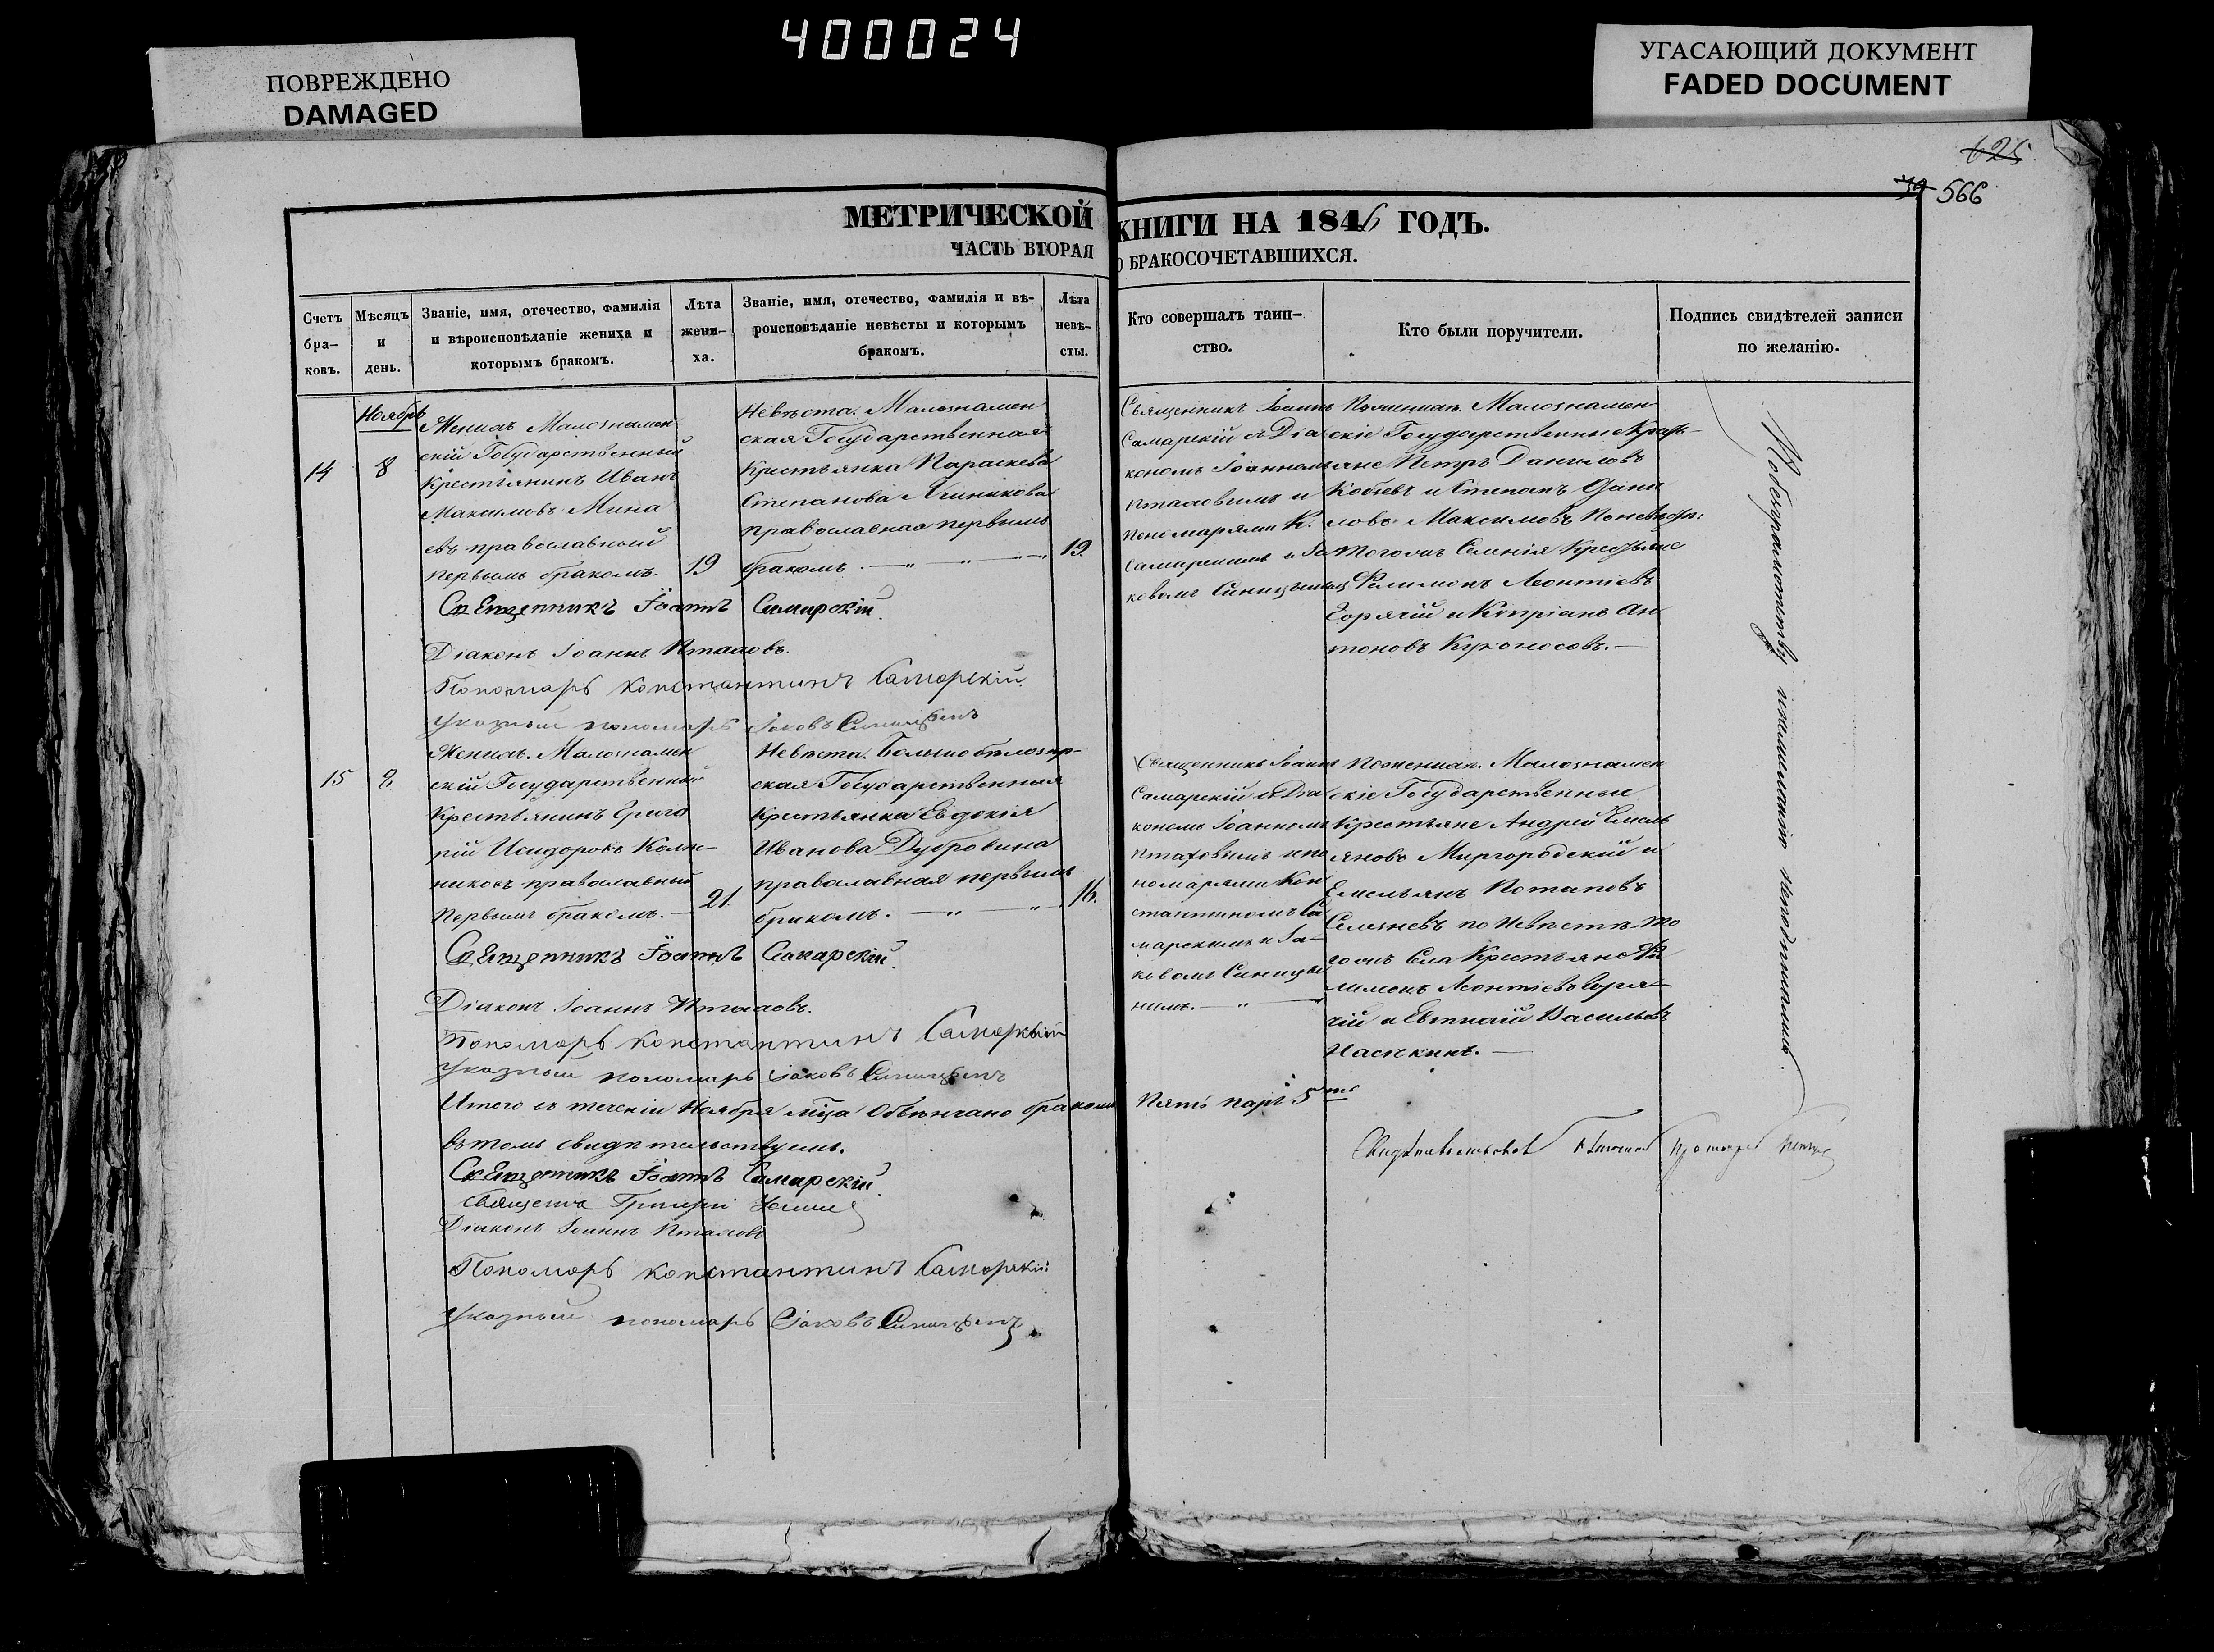 400024
ПОВРЕЖДЕНО
DAMAGED
УГАСАЮЩИЙ ДОКУМЕНТ
FADED DOCUMENT
625.
39 566
МЕТРИЧЕСКОЙ КНИГИ НА 1846 ГОДЪ.
ЧАСТЬ ВТОРАЯ О БРАКОСОЧЕТАВШИХСЯ.
Счетъ
бра-
ковъ.
Мѣсяцъ
и
день.
Званіе, имя, отечество, фамилія
и вѣроисповѣданіе жениха и
которымъ бракомъ.
Лѣта
жени-
ха.
Званіе, имя, отечество, фамилія и вѣ-
роисповѣданіе невѣсты и которымъ
бракомъ.
Лѣта
невѣ-
сты.
Кто совершалъ таин-
ство.
Кто были поручители.
Подпись свидѣтелей записи
по желанію.
Ноябрь
14
8
Женихъ Малознамен
скій Государственный
Крестьянинъ Иванъ
Максимовъ Мина
евъ православный
первымъ бракомъ.
19
Невѣста. Малознамен
ская Государственная
Крестьянка Параскева
Степанова
православная первымъ
бракомъ.
19.
Священникъ Іоаннъ
Самарскій съ Діа
кономъ Іоанномъ
Птаховымъ и
пономарями К.
Самарскимъ и Іа
ковомъ Синицынымъ
По женихѣ. Малознамен
скіе Государственные Кресть-
яне Петръ Даниловъ
Кобзевъ и Степанъ Дани
ловъ Максимовъ По невѣстѣ:
Тогожъ Селенія Крестьяне
Филимонъ Леонтіевъ
Горячій и Кипріанъ Ан
тоновъ Курносовъ.
Священникъ Іоаннъ Самарскій.
Діаконъ Іоаннъ Птаховъ.
Пономарь Константинъ Самарскій.
Указный пономарь Іаковъ Синицынъ
15
8
Женихъ. Малознамен
скій Государственный
Крестьянинъ Григо
рій Исидоровъ Колес-
никовъ православный
Первымъ бракомъ.
21.
Невѣста. Большебѣлозер-
ская Государственная
Крестьянка Евдокія
Иванова Дубровина
православная первымъ
бракомъ.
16.
Священникъ Іоаннъ
Самарскій съ Діа
кономъ Іоанномъ
Птаховымъ и по
номарями Кон
стантиномъ Са
марскимъ и Іа-
ковомъ Синицы
нымъ.
По женихѣ. Малознамен
скіе Государственные
Крестьяне Андрей Емель
яновъ Миргородскій и
Емельянъ Потаповъ
Селезневъ по Невѣстѣ. То
гожъ Села Крестьяне Фи
лимонъ Леонтіевъ Горя-
чій и Евтихій Васильевъ
Пасѣкинъ.
Священникъ Іоаннъ Самарскій.
Діаконъ Іоаннъ Птаховъ.
Пономарь Константинъ Самарскій
Указный пономарь Іаковъ Синицынъ
Итого въ теченіи Ноября мца Обвѣнчано бракомъ Пять паръ 5ть
въ томъ свидѣтельствуемъ.
Священникъ Іоаннъ Самарскій.
Священникъ Григорій
Діаконъ Іоаннъ Птаховъ
Пономарь Константинъ Самарскій
Указный пономарь Іаковъ Синицынъ